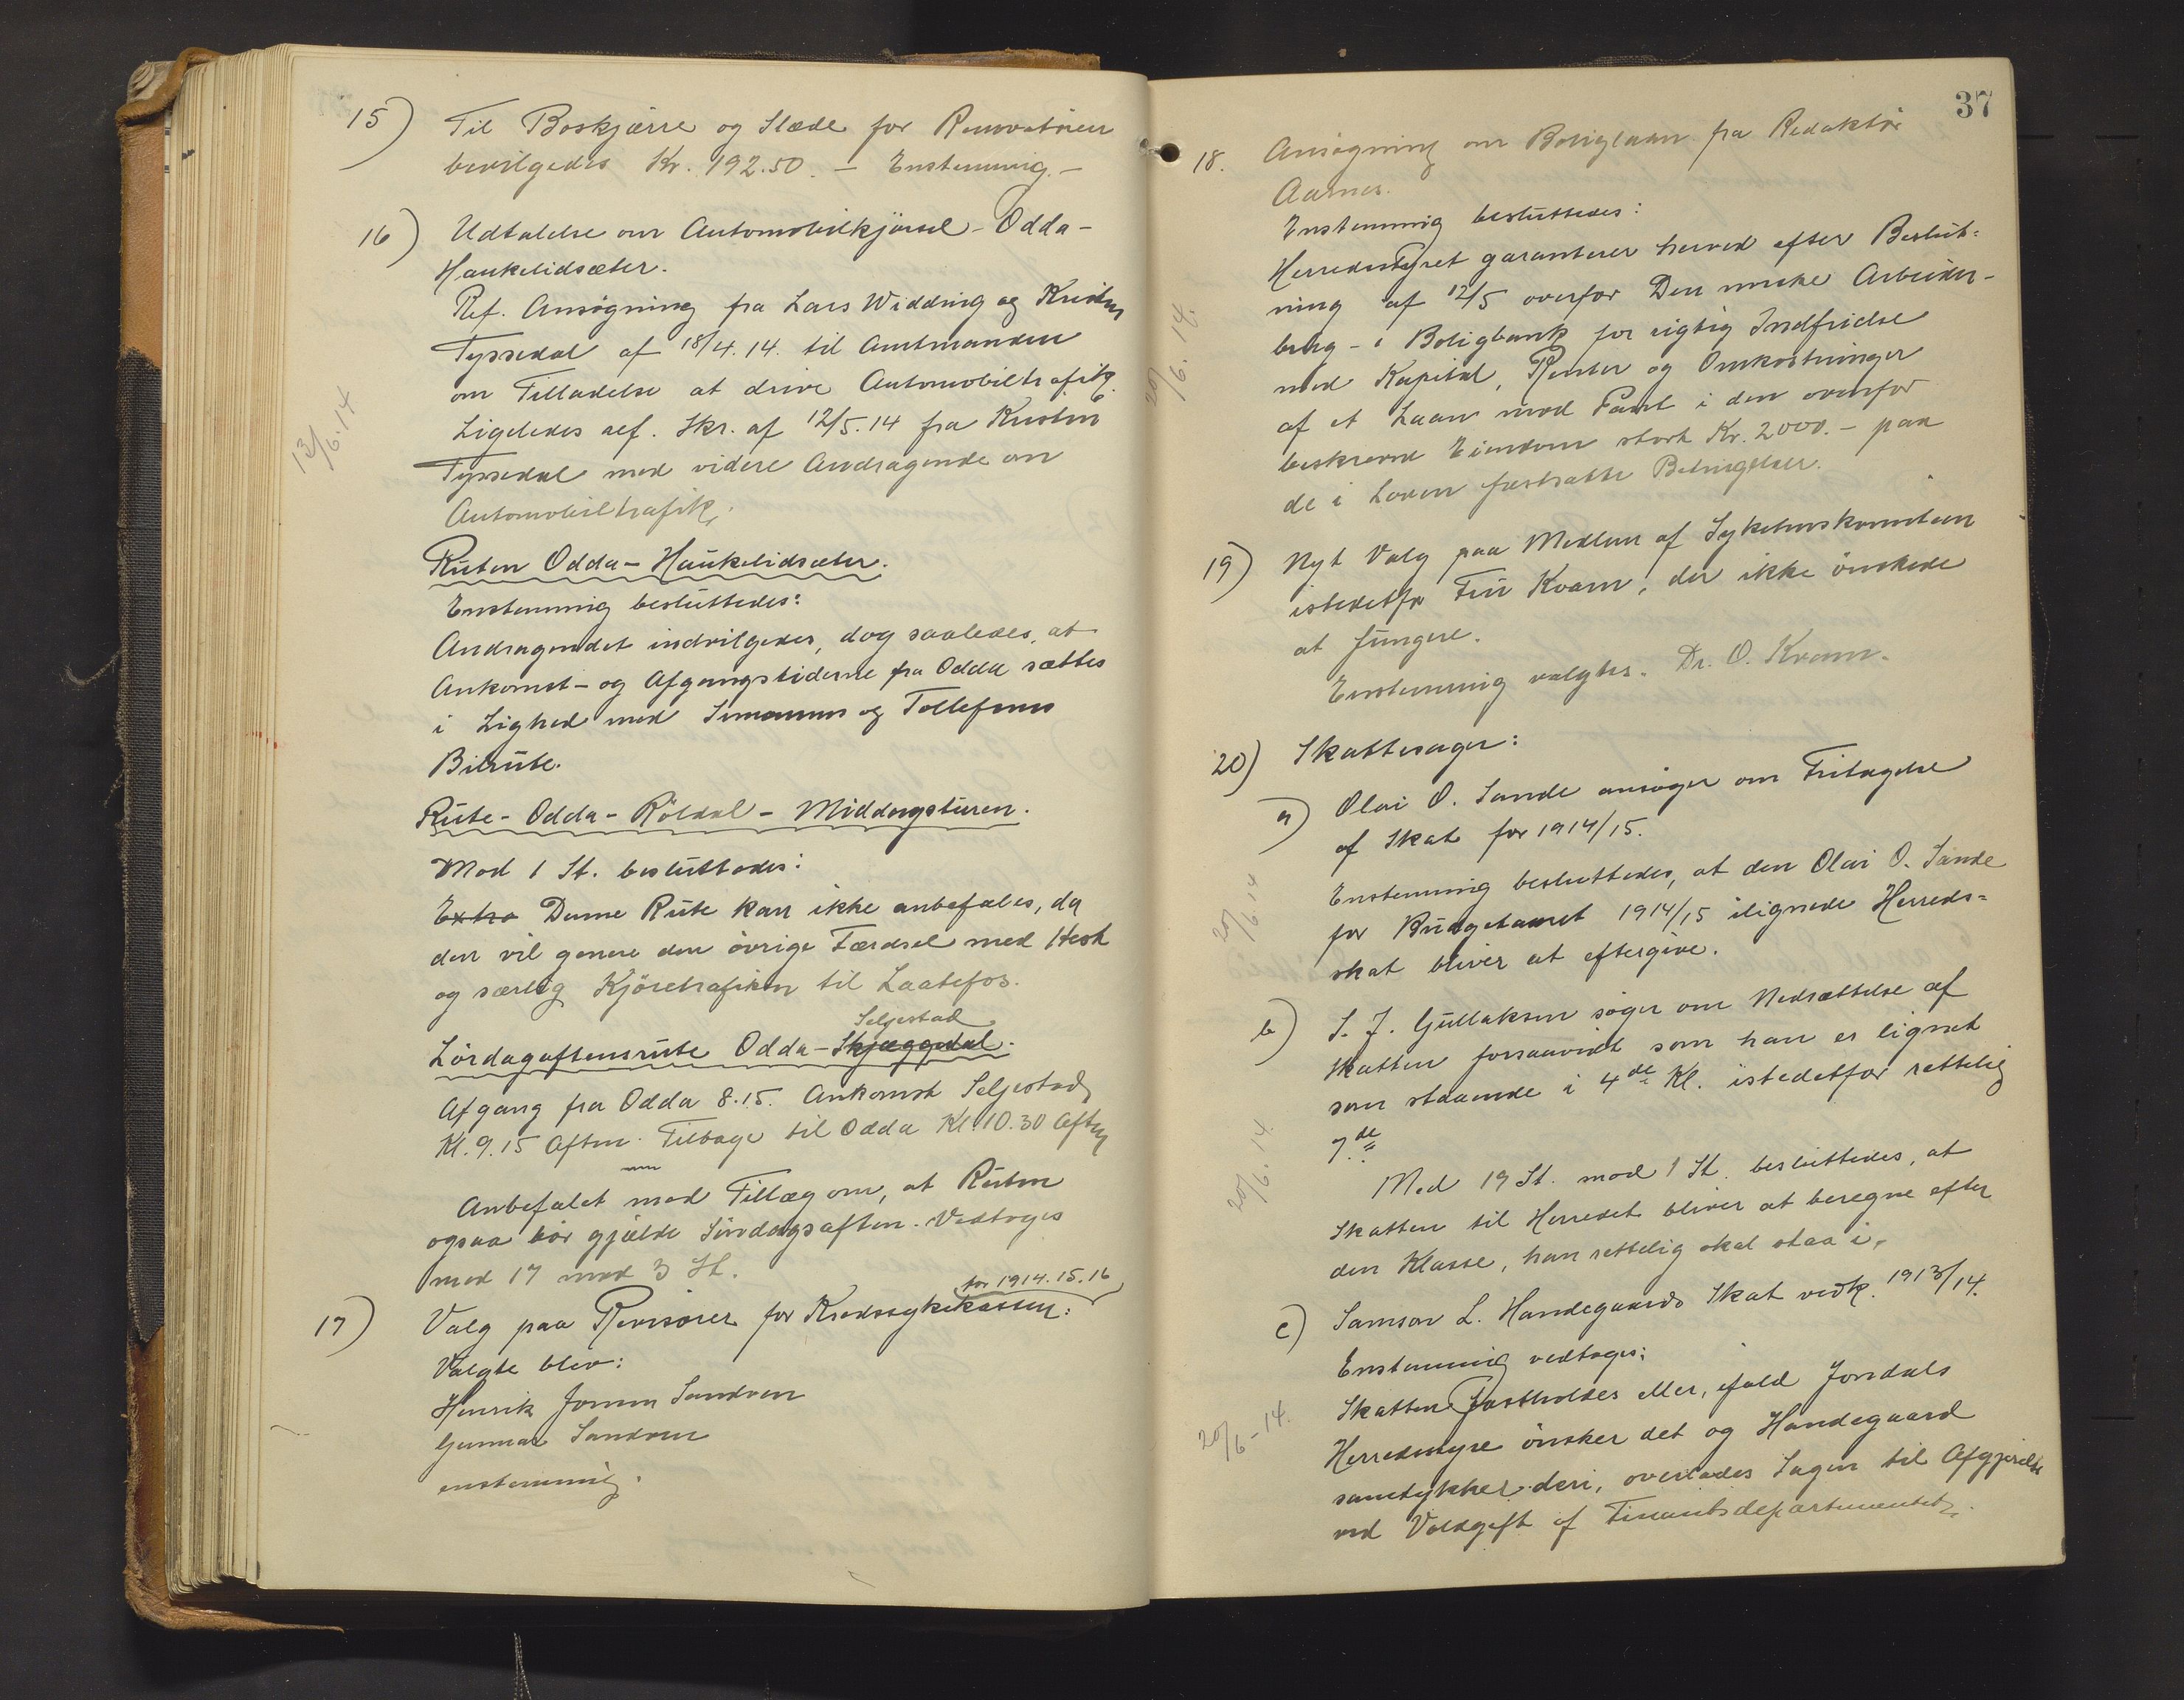 15) Til Boskjærre og Slæde for Renovatören
bevilgedes Kr. 192.50. – Enstemmig. –
16) Udtalelse om Automobilkjörsel – Odda –
Haukelidsæter.
Ref. Ansögning fra Lars Widding og Kristen
Tyssedal af 18/4.14. til Amtmanden
om Tilladelse at drive Automobiltrafik.
Ligeledes ref. Skr. af 12/5.14 fra Kristen
Tyssedal med videre Andragende om
Automobiltrafik.
13/6.14
Ruten Odda – Haukelidsæter.
Enstemmig besluttedes:
Andragendet indvilgedes, dog saaledes, at
Ankomst- og Afgangstiderne fra Odda sættes
i Lighed med Simonsens og Tollefsens
Bilrute.
Rute – Odda – Röldal – Middagsturen.
Mod 1 St. besluttedes:
Extra Denne Rute kan ikke anbefales, da
den vil genere den övrige Færdsel med Hest
og særlig Kjöretrafiken til Laatefos.
Seljestad
Lördagaftensrute Odda – Skjæggedal.
Afgang fra Odda 8.15. Ankomst Seljestad
Kl. 9.15 Aften. Tilbage til Odda Kl. 10.30 Aften
Anbefalet med Tillæg om, at Ruten
ogsaa bör gjælde Söndagsaften. Vedtoges
med 17 mod 3 St.
for 1914.15.16
17) Valg paa Revisorer for Kredssykekassen:
Valgte blev:
Henrik Jonsen Sandven
Gunnar Sandven
enstemmig.
37
18. Ansögning om Boliglaan fra Redaktör
Aarnes.
Enstemmig besluttedes:
Herredsstyret garanterer herved efter Beslut-
ning af 12/5 overfor Den norske Arbeider-
brug- & Boligbank for rigtig Indfrielse
med Kapital, Renter og Omkostninger
af et Laan mod Pant i den ovenfor
beskrevne Eiendom stort Kr. 2000.– paa
de i Loven fastsatte Betingelser.
20/6.14.
19) Nyt Valg paa Medlem af Sykehuskomiteen
istedetfor Fru Kvam, der ikke önskede
at fungere.
Enstemmig valgtes. Dr. O. Kvam.
20) Skattesager:
a) Olai O. Sande ansöger om Fritagelse
af Skat for 1914/15.
Enstemmig besluttedes, at den Olai O. Sande
for Budgetaaret 1914/15 ilignede Herreds-
skat bliver at eftergive.
20/6.14
b) S. J. Gullaksen söger om Nedsættelse af
Skatten forsaavidt som han er lignet
som staaende i 4de Kl. istedetfor rettelig
7.de
Med 19 St. mod 1 St. besluttedes, at
Skatten til Herredet bliver at beregne efter
den Klasse, han rettelig skal staa i.
20/6.14.
c) Samson L. Handegaards Skat vedk. 1913/14.
Enstemmig vedtoges:
Skatten fastholdes eller, ifald Jondals
Herredsstyre önsker det og Handegaard
samtykker deri, overlades Sagen til Afgjörelse
ved Voldgift af Finantsdepartementet.
20/6-14.